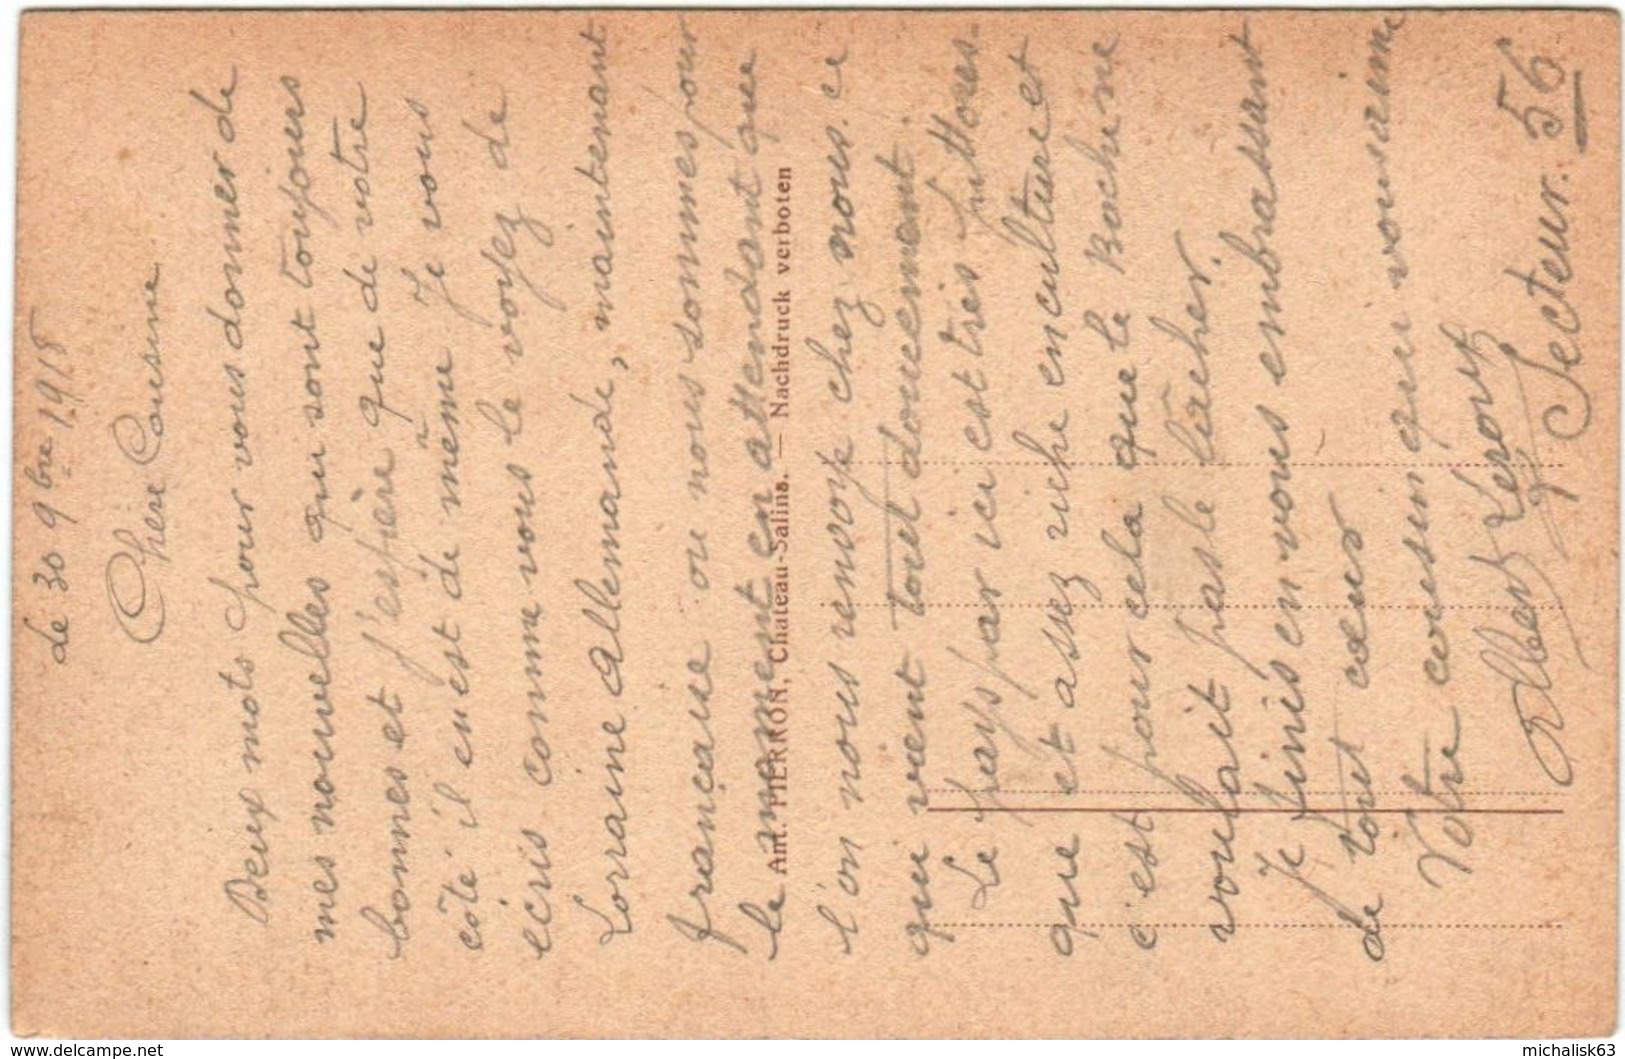 Le 30 9bre 1918
Chère Cousine
Deux mots pour vous donner de
mes nouvelles qui sont toujours
bonnes et j'espère que de votre
côté il en est de même Je vous
écris comme vous le voyez de
Lorraine Allemande, maintenant
française ou nous sommes pour
le moment en attendant que
l'on nous renvoye chez nous. ce
qui vient tout doucement.
Le pays par ici est très pittores-
que et assez riche en culture et
c'est pour cela que le Boche ne
voulait pas le lâcher.
Je finis en vous embrassant
de tout cœur
Votre cousin qui vous aime
Albert Leroux
Secteur. 56
Ant. PIERRON, Château-Salins. — Nachdruck verboten
www.delcampe.net
michalisk63